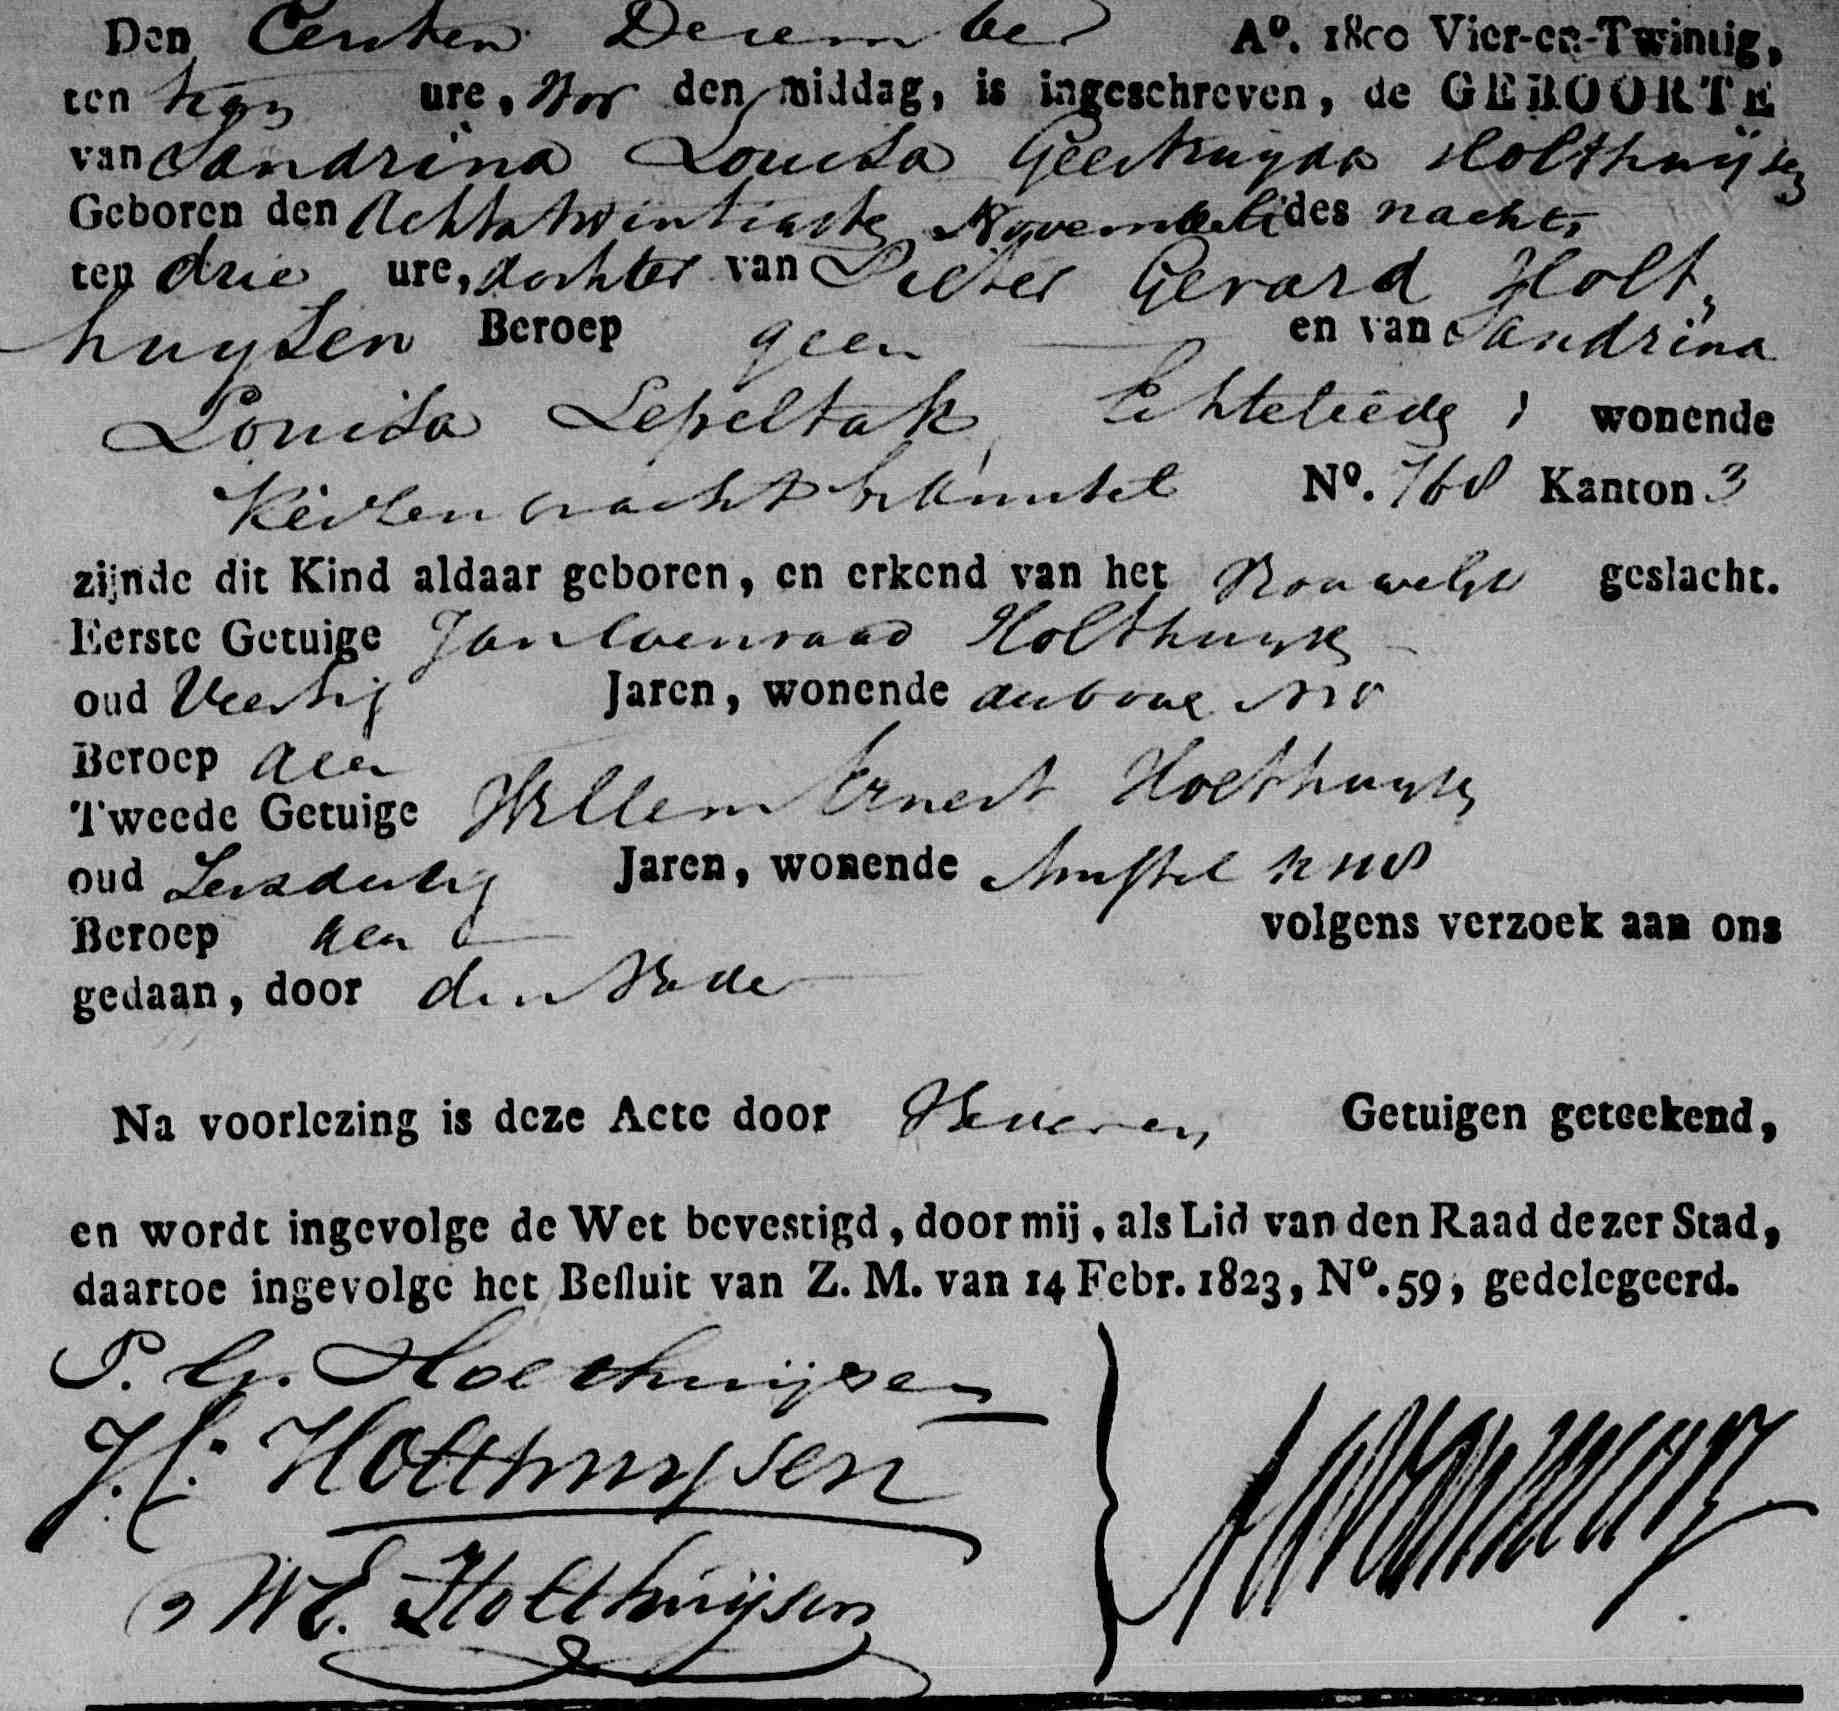 Den Eersten December Aº. 1800 Vier-en-Twintig,
ten tien ure, Voor den middag, is ingeschreven, de GEBOORTE
van Sandrina Louisa Geertruyda Holthuijsen
Geboren den Achtentwintigste November des nachts
ten drie ure, dochter van Pieter Gerard Holt,
huysen Beroep geen en van Sandrina
Louisa Lepeltak, Echtelieden, wonende
Keizersgracht Nº. 760 Kanton 3
zijnde dit Kind aldaar geboren, en erkend van het Vrouwelijk geslacht.
Eerste Getuige Jan Coenraad Holthuysen
oud Veertig Jaren, wonende
Beroep geen
Tweede Getuige Willem Ernest Holthuysen
oud Jaren, wonende Amstel
Beroep geen volgens verzoek aan ons
gedaan, door den Vader
Na voorlezing is deze Acte door Getuigen geteekend,
en wordt ingevolge de Wet bevestigd, door mij, als Lid van den Raad dezer Stad,
daartoe ingevolge het Besluit van Z. M. van 14 Febr. 1823, Nº. 59, gedelegeerd.
P. G. Holthuijsen
J. C. Holthuysen
W E. Holthuijsen